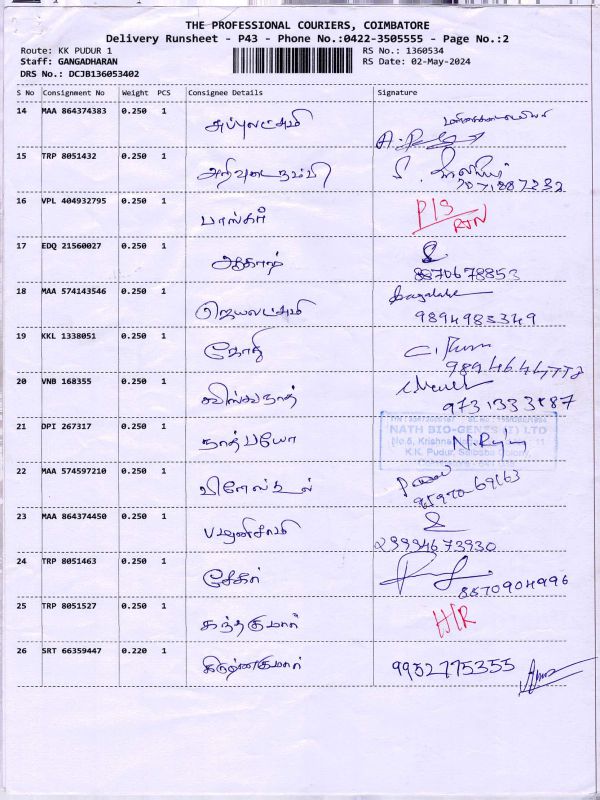 THE PROFESSIONAL COURIERS, COIMBATORE
Delivery Runsheet - P43 - Phone No.:0422-3505555 - Page No.:2
Route: KK PUDUR 1
RS No.: 1360534
Staff: GANGADHARAN
RS Date: 02-May-2024
DRS No.: DCJB136053402
S No Consignment No Weight PCS Consignee Details Signature
14 MAA 864374383 0.250 1 அப்புலட்சுமி
15 TRP 8051432 0.250 1 அறிவுடைநம்பி
16 VPL 404932795 0.250 1 பாஸ்கர் RTN
17 EDQ 21560027 0.250 1 ஆகாஷ்
8870678853
18 MAA 574143546 0.250 1 ஜெயலட்சுமி
9894983349
19 KKL 1338051 0.250 1 ஜோதி
20 VNB 168355 0.250 1 விஸ்வநாத்
9731333587
21 DPI 267317 0.250 1 நாத்பயோ
NATH BIO-GENES (I) LTD
22 MAA 574597210 0.250 1
9597069163
23 MAA 864374450 0.250 1 பழனிசாமி
24 TRP 8051463 0.250 1 சேகர்
8870904996
25 TRP 8051527 0.250 1 கந்தகுமார்
26 SRT 66359447 0.220 1 கிருஷ்ணகுமார் 9952775355